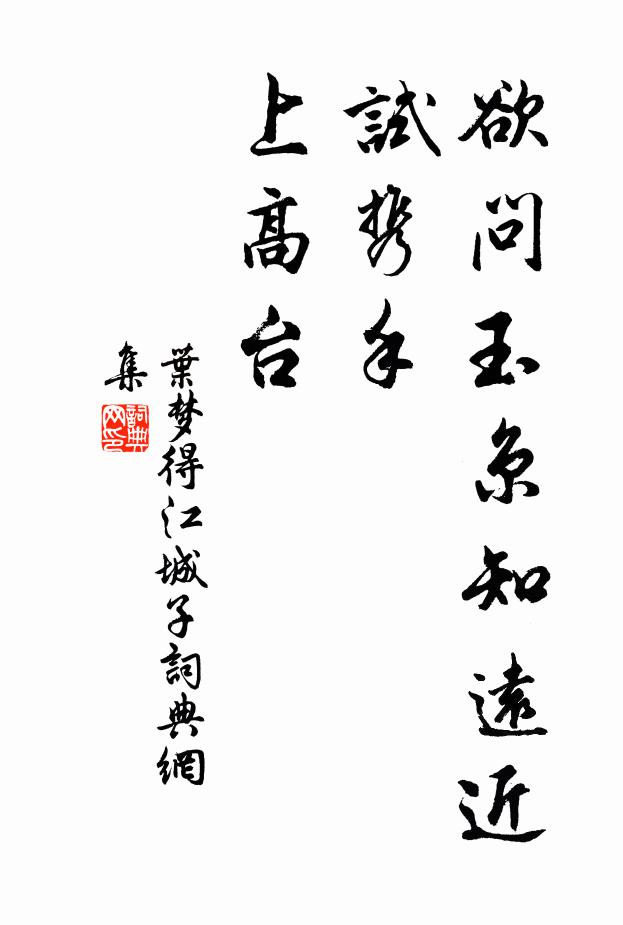 欲問玉京知遠近
試攜手
上高台
葉梦得江城子詞典網
集
詞典
网印